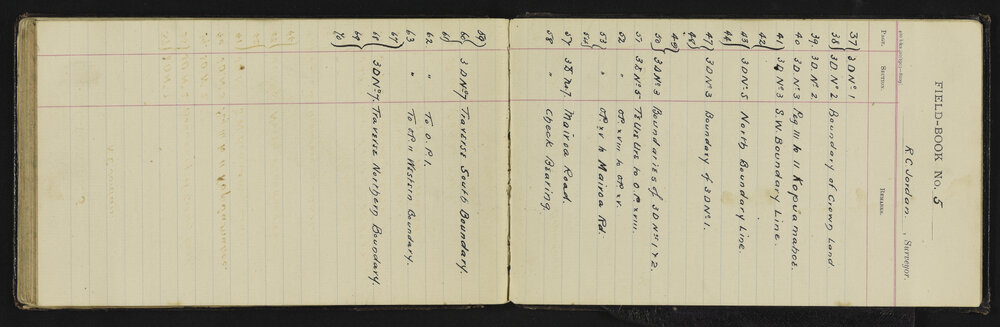 FIELD-BOOK No. 5
R C Jordan, Surveyor.
Page. Section. Remarks.
37 3 D No 1
38 3 D No 2 Boundary of Crown Land.
39. 3 D. No. 2
40 3 D No. 3 Peg III to II Kopuamahoe.
41 3 D No 3 S.W. Boundary Line.
42
43 3 D No. 5 North Boundary Line.
44
47 3 D No. 3 Boundary of 3 D No. 1.
48
49
50 3 D No. 3 Boundaries of 3 D No 1 & 2.
to O.P. XVIII.
52 " O.P. XVIII to O.P. XV.
53 " O.P. XV. to Mairoa Rd.
54
57 Mairoa Road.
58 " Check Bearing.
59
60 3 D No 7 Traverse South Boundary
61
62 " To O.P. 1.
63 " To O.P. 11 Western Boundary.
67
68 3 D No 7. Traverse Northern Boundary.
69
70